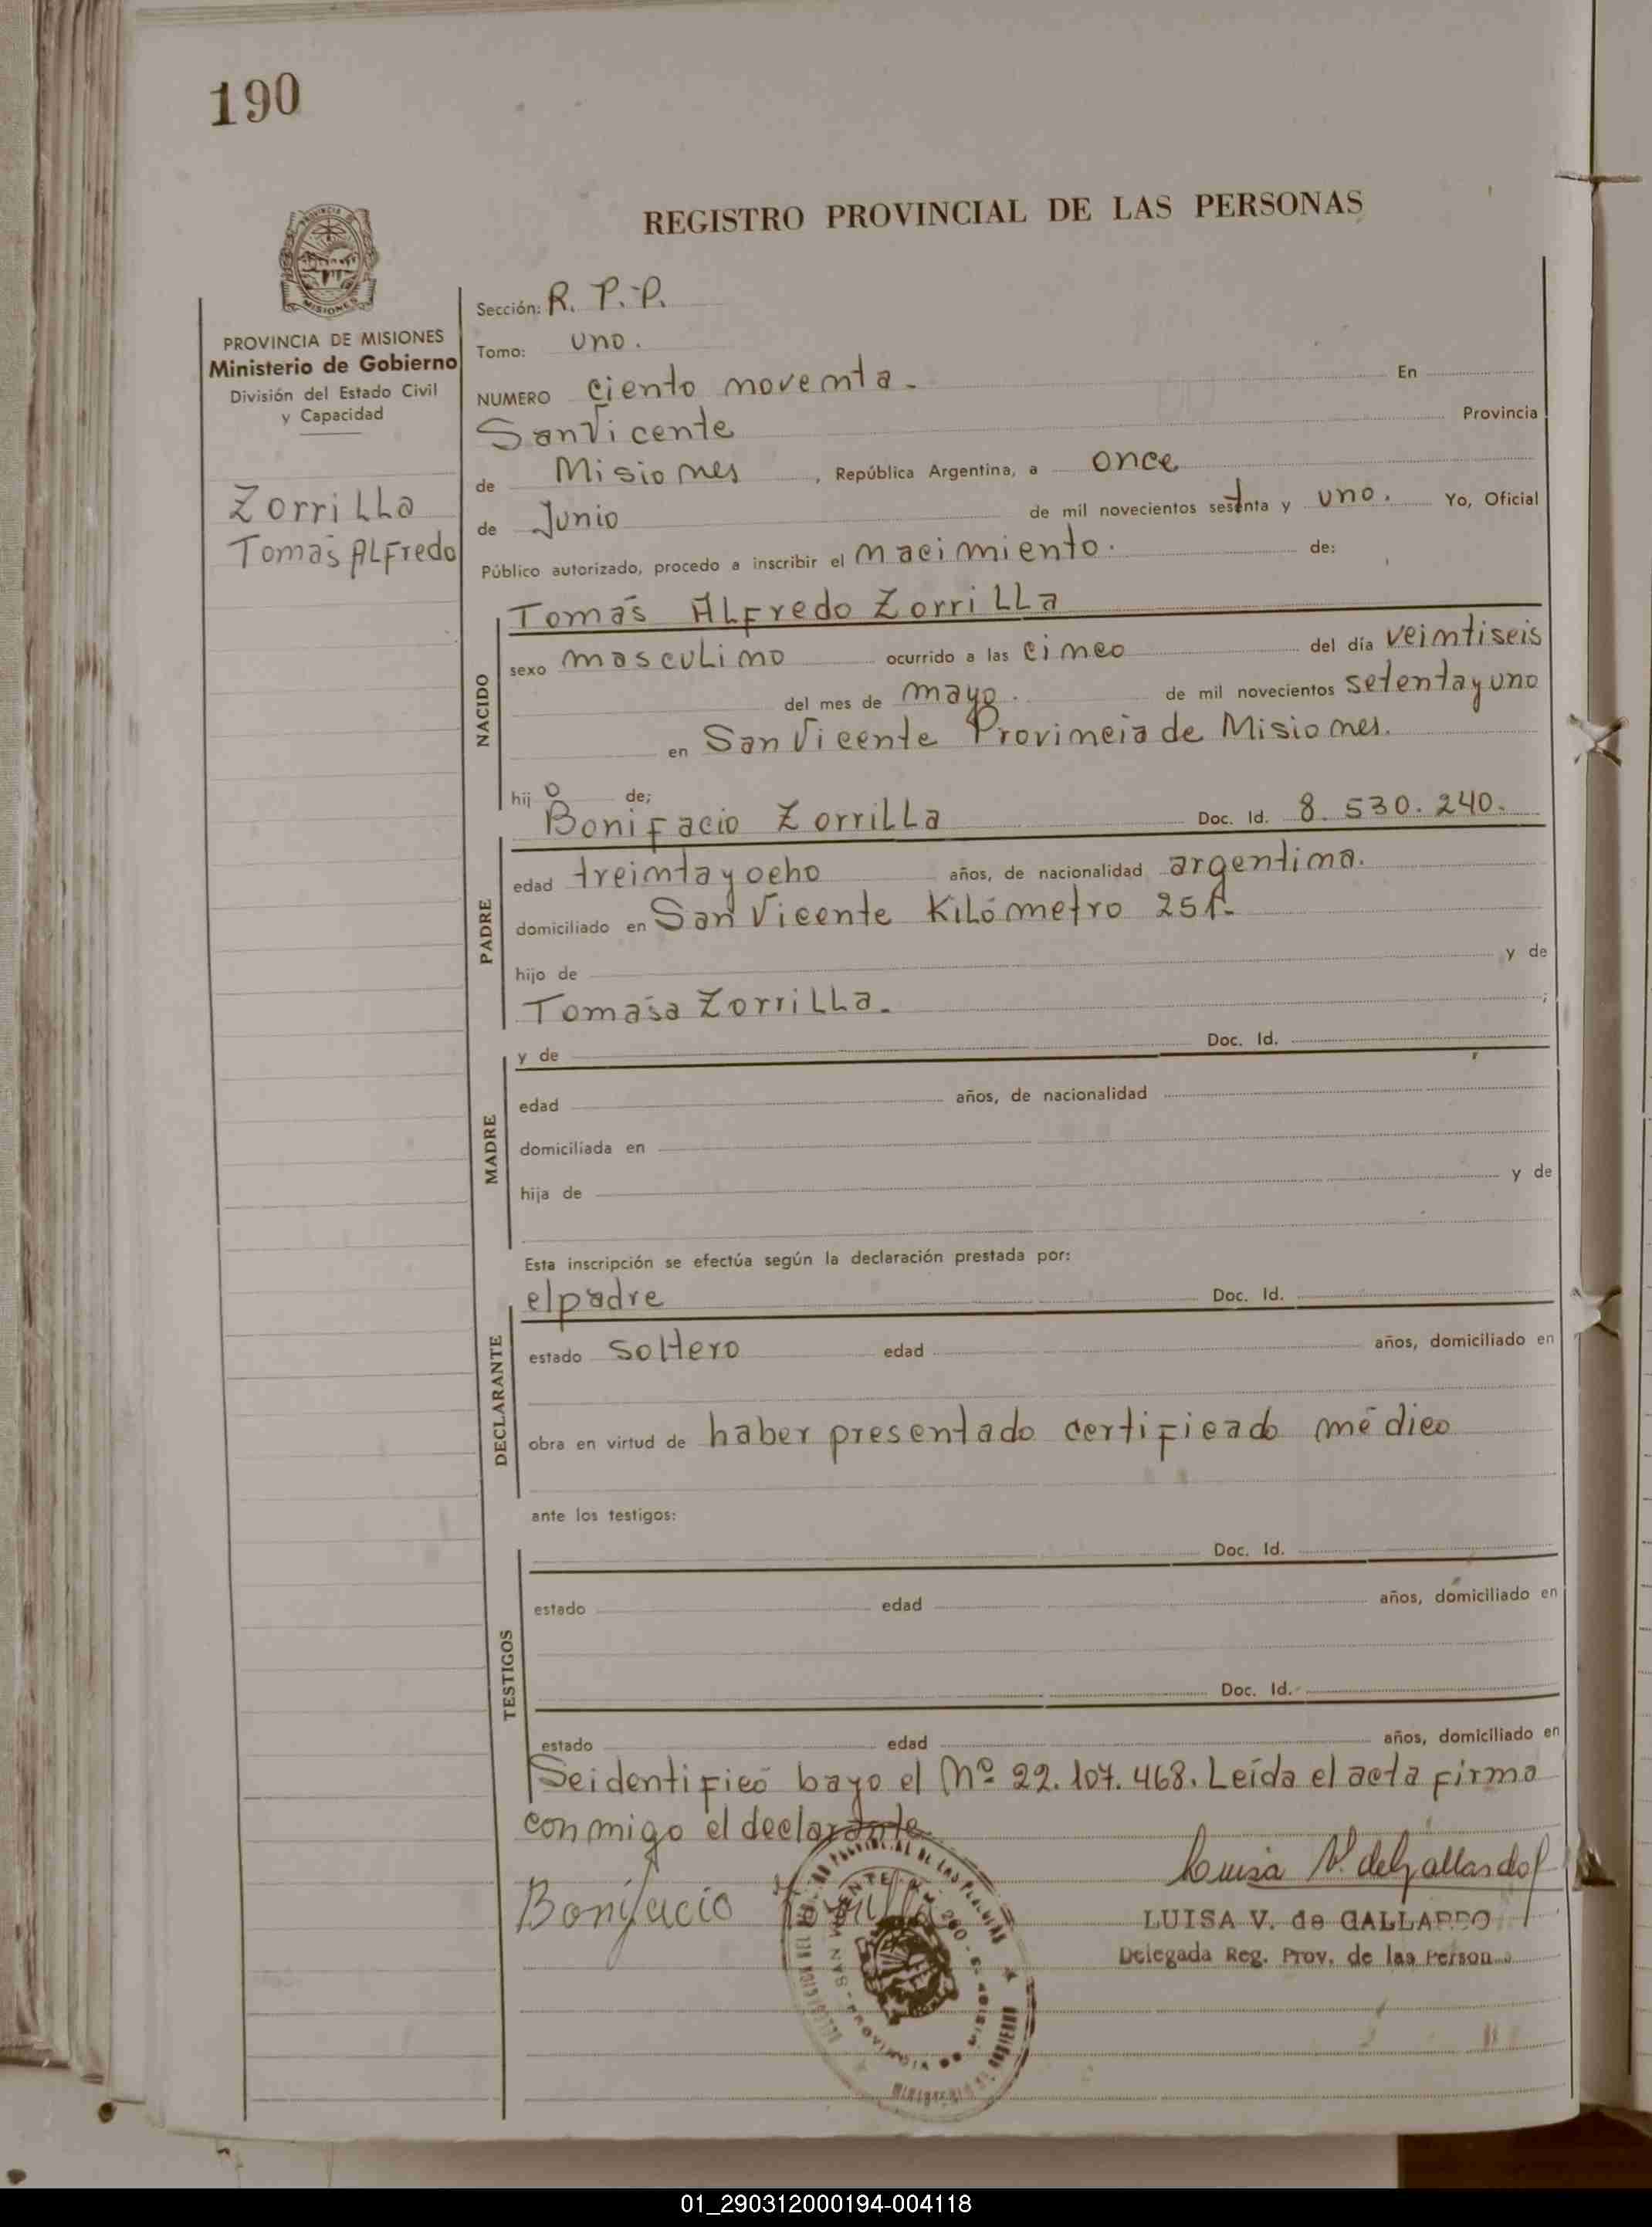 190
REGISTRO PROVINCIAL DE LAS PERSONAS
MISIONES
PROVINCIA DE MISIONES
Ministerio de Gobierno
División del Estado Civil
y Capacidad
Zorrilla
Tomás Alfredo
Sección: R. P. P.
Tomo: uno.
NUMERO ciento noventa. En
San Vicente Provincia
de Misiones, República Argentina, a once
de Junio de mil novecientos setenta y uno. Yo, Oficial
Público autorizado, procedo a inscribir el nacimiento. de:
NACIDO
Tomás Alfredo Zorrilla
sexo masculino ocurrido a las cinco del día veintiseis
del mes de mayo. de mil novecientos setenta y uno
en San Vicente Provincia de Misiones.
hijo de;
PADRE
Bonifacio Zorrilla Doc. Id. 8.530.240.
edad treinta y ocho años, de nacionalidad argentina.
domiciliado en San Vicente Kilómetro 251.
hijo de y de
Tomasa Zorrilla. ;
MADRE
y de Doc. Id.
edad años, de nacionalidad
domiciliada en
hija de y de
Esta inscripción se efectúa según la declaración prestada por:
DECLARANTE
el padre Doc. Id.
estado soltero edad años, domiciliado en
obra en virtud de haber presentado certificado médico
ante los testigos:
TESTIGOS
Doc. Id.
estado edad años, domiciliado en
Doc. Id.
estado edad años, domiciliado en
Se identificó bajo el Nº 22.107.468. Leída el acta firma
conmigo el declarante
Bonifacio Zorrilla
Luisa V. de Gallardo
LUISA V. de GALLARDO
Delegada Reg. Prov. de las Person
01_290312000194-004118